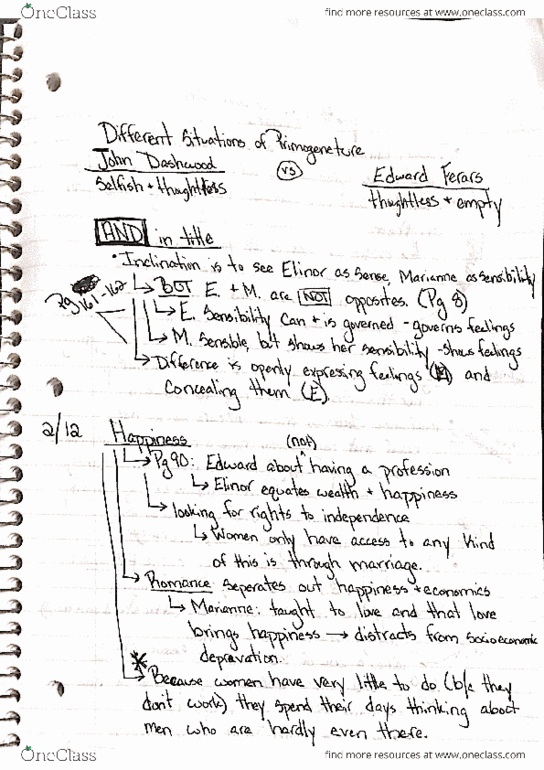 OneClass
find more resources at www.oneclass.com
Different Situations of Primogeneture
John Dashwood
vs
Edward Ferars
Selfish + thoughtless
thoughtless + empty
AND in title
• Inclination is to see Elinor as Sense, Marianne as sensibility
Pg 161-162
↳ BOT E. + M. are NOT opposites. (Pg 8)
↳ E. Sensibility can + is governed - governs feelings
↳ M. Sensible, but shows her sensibility - shows feelings
↳ Difference is openly expresing feelings (M) and
Concealing them (E)
2/12
Happiness
(not)
↳ Pg 90: Edward about ^ having a profession
↳ Elinor equates wealth + happiness
↳ looking for rights to independence
↳ Women only have access to any kind
of this is through marriage.
↳ Romance seperates out happiness + economics
↳ Marianne: taught to love and that love
brings happiness → distracts from socioeconomic
depravation.
* ↳ Because women have very little to do (b/c they
don't work) they spend their days thinking about
men who are hardly even there.
OneClass
find more resources at www.oneclass.com